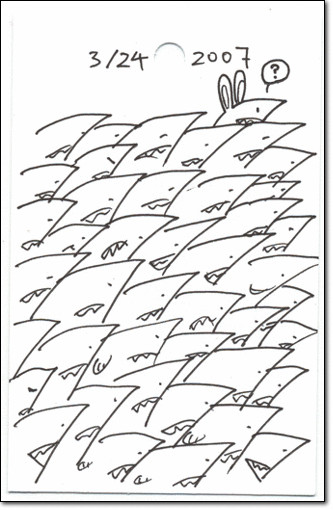 3/24 2007
?